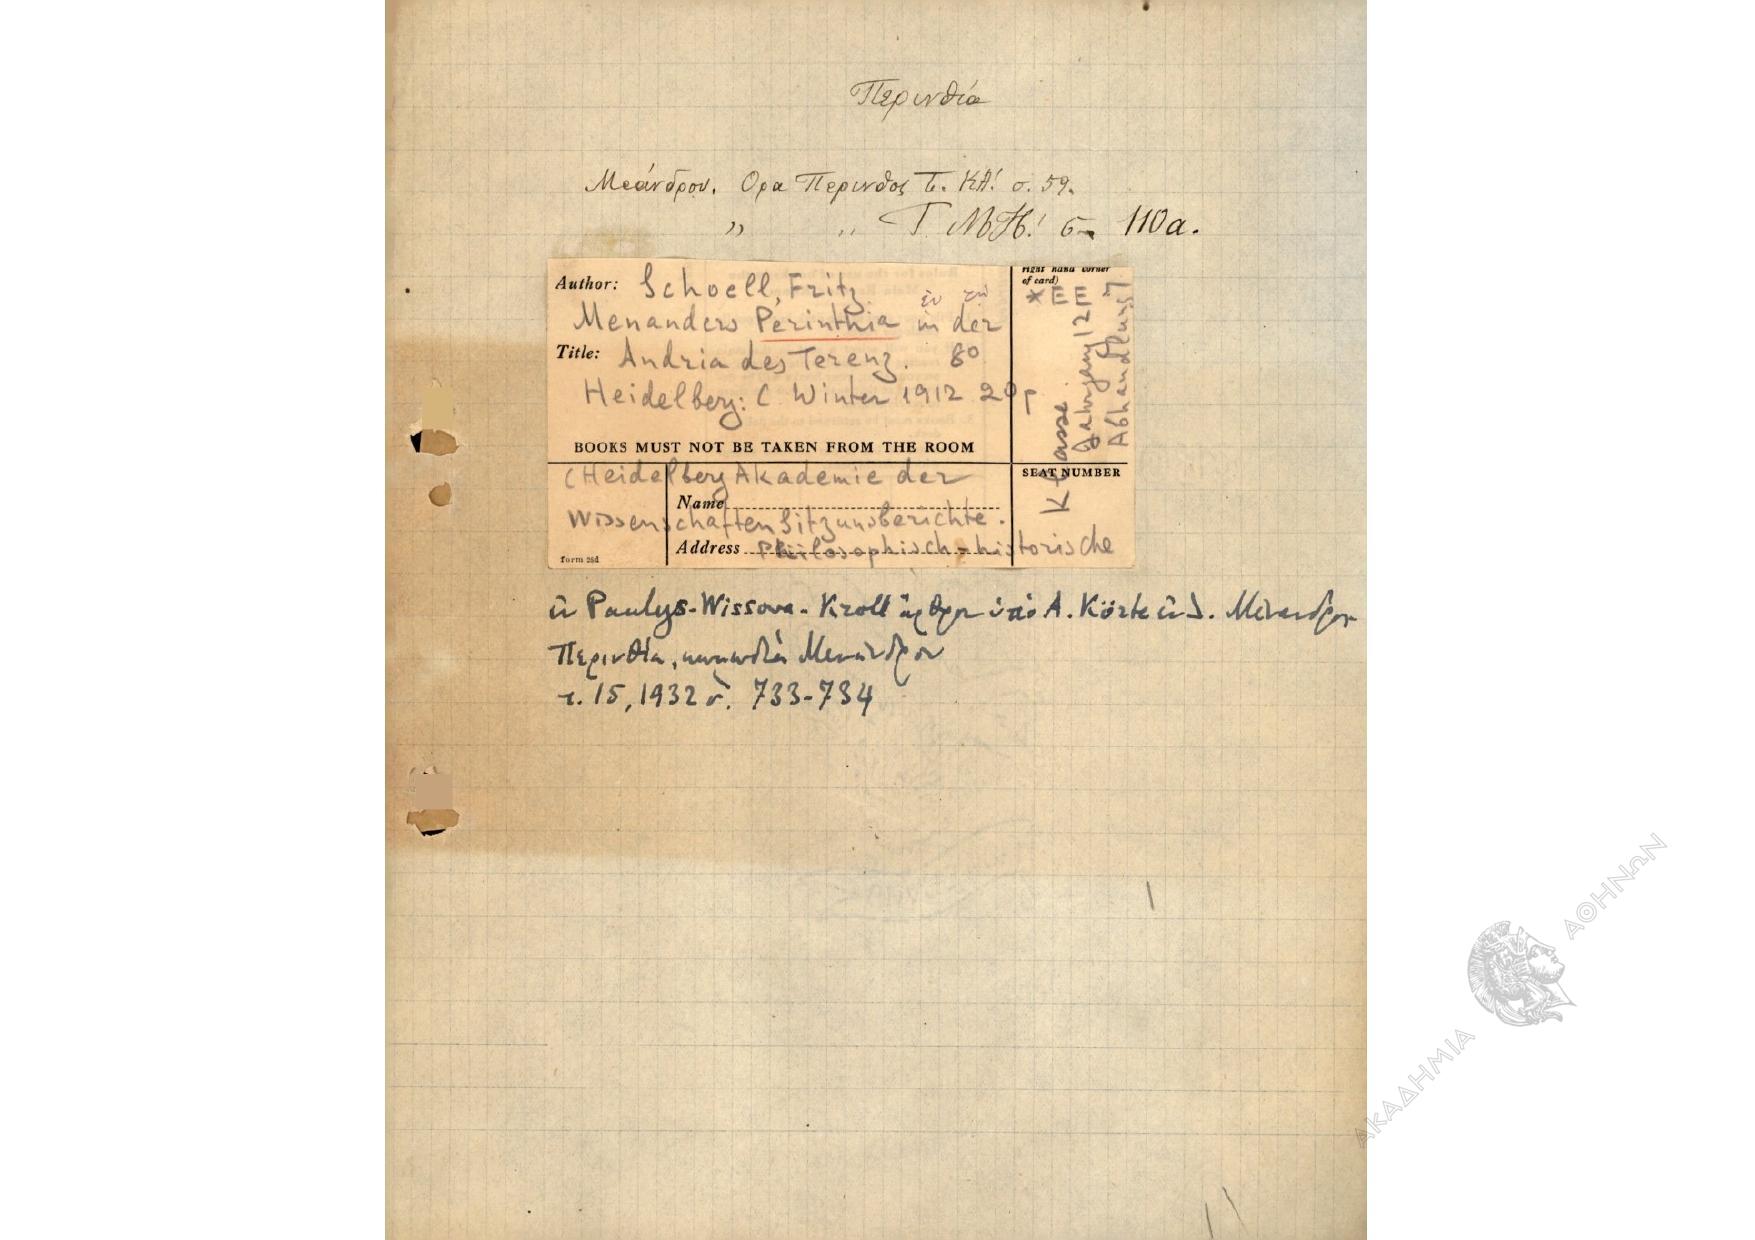 Περινθία
Μεάνδρου. Ορα Πέρινθος Τ. ΚΑ! σ. 59.
” ” Τ. ΜΗ! σ. 110α.
right hand corner
of card)
Author: Schoell, Fritz
ἐν τῷ
Menanders Perinthia in der
Title: Andria des Terenz. 8º
Heidelberg: C. Winter 1912 20p
BOOKS MUST NOT BE TAKEN FROM THE ROOM
*EE
SEAT NUMBER
(Heidelberg Akademie der
Name
Wissenschaften Sitzunsberichte.
Address Philosophisch-historische
Klasse
Jahrgang 12
Abhandlung 7
form 28d
ἐν Paulys-Wissova-Kroll ἄρθρον ὑπὸ A. Körte ἐν λ. Μένανδρος
Περινθία, κωμωδία Μενάνδρου
τ. 15, 1932 σ. 733-734
ΑΚΑΔΗΜΙΑ ΑΘΗΝΩΝ